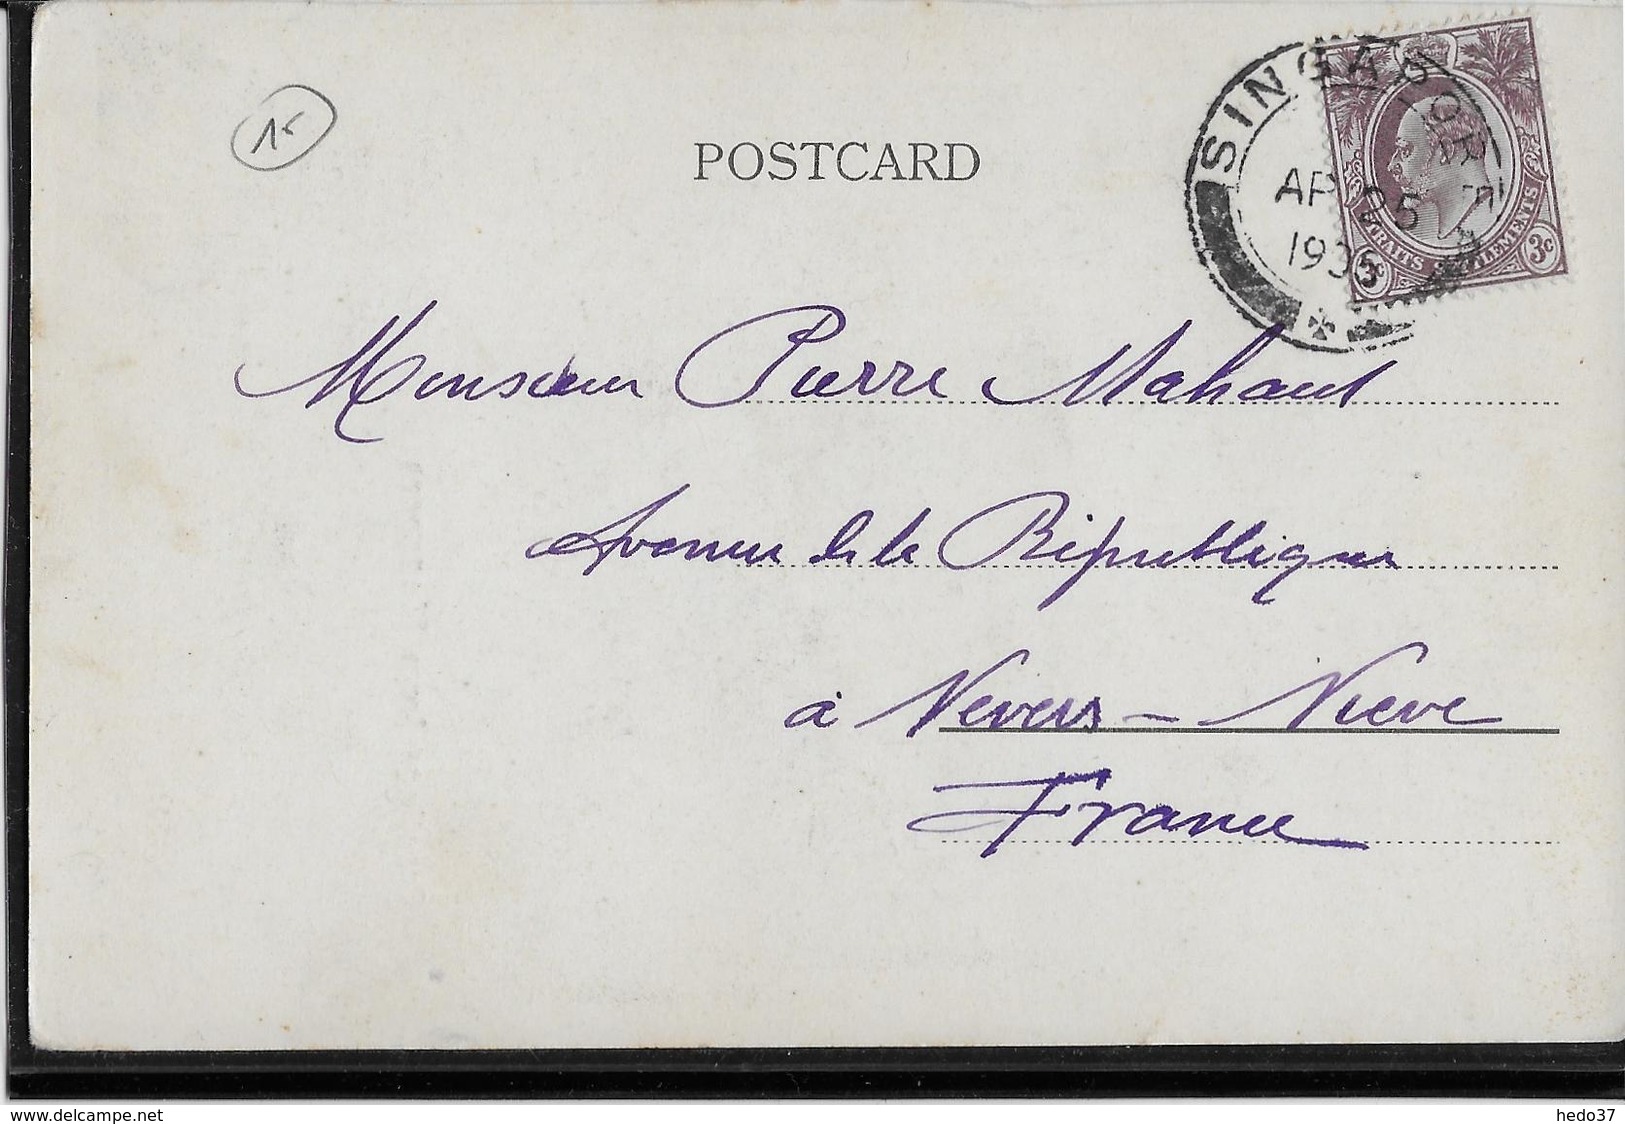 15
POSTCARD
SINGAPORE
AP 25
1905
STRAITS SETTLEMENTS
3c 3c
Monsieur Pierre Mahaut
Avenue de la République
à Nevers - Nièvre
France
www.delcampe.net
hedo37